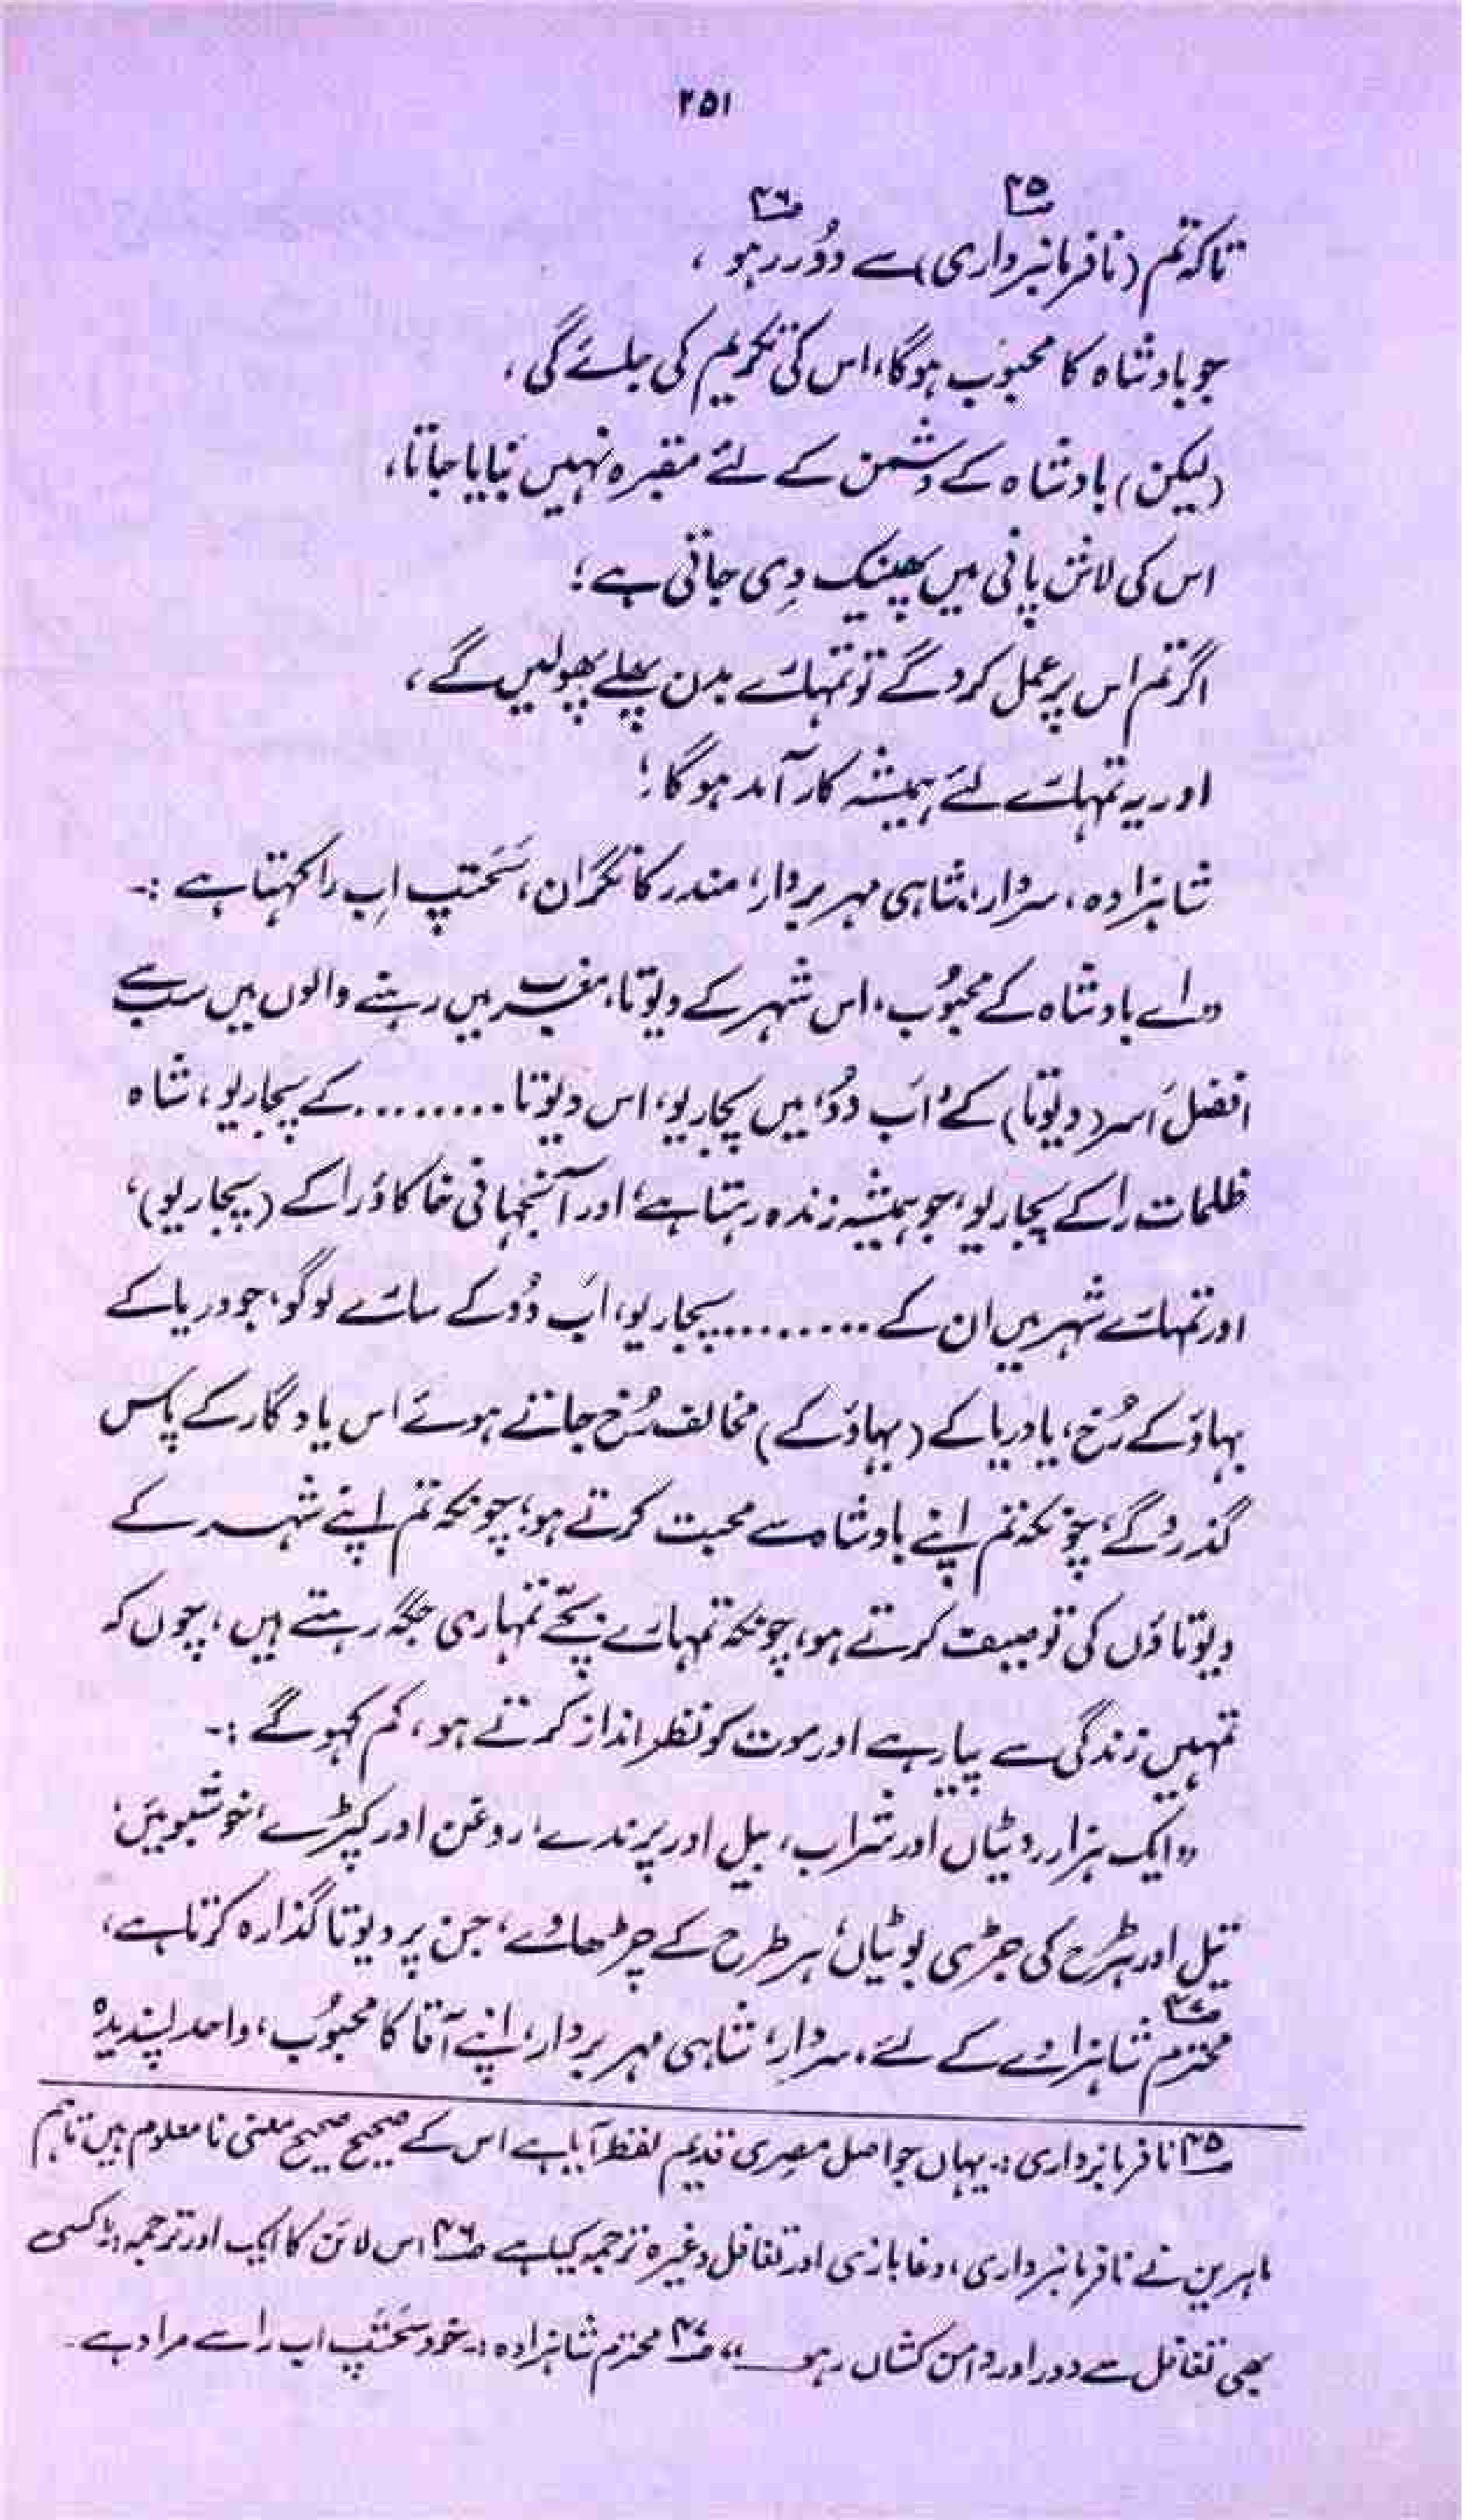 ۲۵۱
۳۵ ۳۶
تاکہ تم (نافرمانبرداری) سے دُور رہو ،
جو بادشاہ کا محبوب ہوگا، اس کی تکریم کی جائے گی ،
(لیکن) بادشاہ کے دشمن کے لئے مقبرہ نہیں بنایا جاتا ،
اس کی لاش پانی میں پھینک دِی جاتی ہے ؛
اگر تم اس پر عمل کرو گے تو تمہارے بدن پھلے پھولیں گے ،
اور یہ تمہارے لئے ہمیشہ کارآمد ہوگا ؛
شاہزادہ ، سردار، شاہی مہر بردار، مندر کا نگران ، سَحتپ اِب را کہتا ہے :-
"اے بادشاہ کے محبُوب ، اس شہر کے دیوتا ، مغرب میں رہنے والوں میں سب سے
افضل اَسر (دیوتا) کے اَب دُو میں پجاریو ، اس دیوتا ........ کے پجاریو ، شاہ
ظلمات را کے پجاریو ، جو ہمیشہ زندہ رہتا ہے ، اور آنجہانی خاکاؤرا کے (پجاریو) ،
اور تمہارے شہر میں ان کے ......... پجاریو ، اَب دُو کے سارے لوگو ، جو دریا کے
بہاؤ کے رُخ ، یا دریا کے (بہاؤ کے) مخالف رُخ جاتے ہوئے اس یادگار کے پاس
گذرو گے ، چونکہ تم اپنے بادشاہ سے محبت کرتے ہو ، چونکہ تم اپنے شہر کے
دیوتاؤں کی توصیف کرتے ہو ، چونکہ تمہارے بچّے تمہاری جگہ رہتے ہیں ، چوں کہ
تمہیں زندگی سے پیار ہے اور موت کو نظر انداز کرتے ہو ، تم کہو گے :-
"ایک ہزار روٹیاں اور شراب ، بیل اور پرندے ، روغن اور کپڑے ، خوشبوئیں ،
تیل اور ہر طرح کی جڑی بوٹیاں ، ہر طرح کے چڑھاوے ، جن پر دیوتا گذارہ کرتا ہے ،
محترم ۳۷ شاہزادے کے لئے ، سردار ، شاہی مہر بردار ، اپنے آقا کا محبُوب ، واحد پسندیدہ
۳۵ نافرمانبرداری :- یہاں جو اصل مصری قدیم لفظ آیا ہے اس کے صحیح صحیح معنی نامعلوم ہیں تاہم
ماہرین نے نافرمانبرداری ، دغابازی اور تغافل وغیرہ ترجمہ کیا ہے ۳۶ اس لائن کا ایک اور ترجمہ :- کسی
بھی تغافل سے دور اور دامن کشاں رہو" ۳۷ محترم شاہزادہ :- خود سَحتَپ اب را سے مراد ہے -